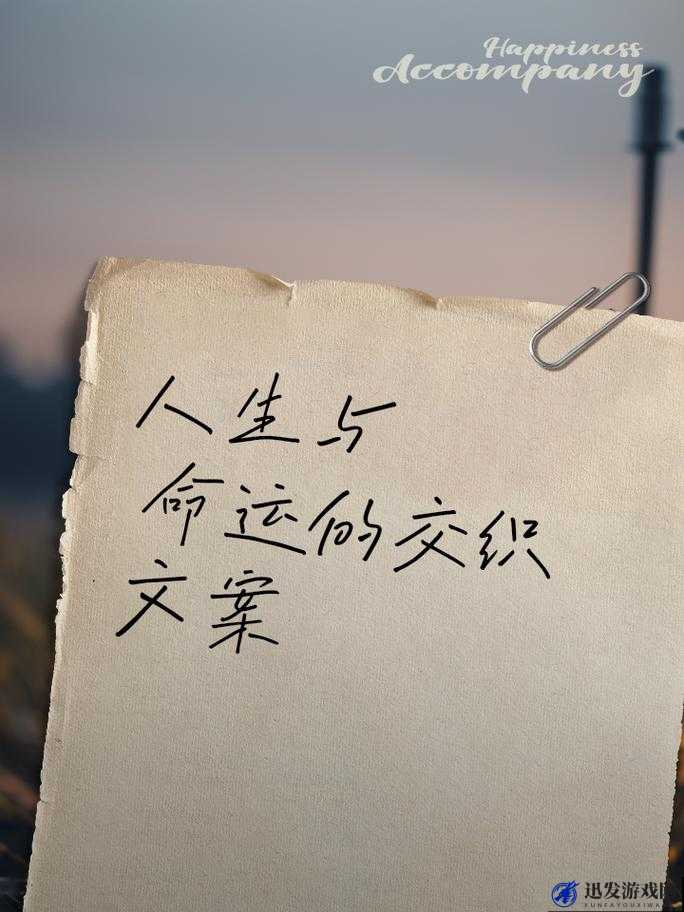 Happiness
Accompany
人生与
命运的交织
文案
迅发游戏网
XUNFAYOUXIWANG